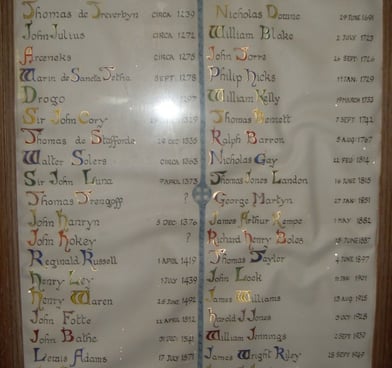 Thomas de Treverbyn CIRCA 1239
John Julius CIRCA 1272
Arceneks CIRCA 1275
Warin de Sancta Jetha SEPT. 1278
Drogo 1297
Sir John Cory 1319
Thomas de Stafforde 1335
Walter Solers CIRCA 1363
Sir John Luna 7 APRIL 1373
Thomas Trengoff ?
John Hanryn 5 DEC. 1376
John Hokey ?
Reginald Russell 1 APRIL 1419
Henry Ley 7 JULY 1439
Henry Waren 26 JUNE 1492
John Fotte 22 APRIL 1512
John Bathe 1541
Lewis Adams 17 JULY 1571
Nicholas Downe 29 JUNE 1691
William Blake 2 JULY 1723
John Torre 26 SEPT. 1726
Philip Hicks 17 JAN. 1729
William Kelly 19 MARCH 1735
Thomas Bennett 7 SEPT. 1742
Ralph Barron 5 AUG. 1767
Nicholas Gay 22 FEB. 1814
Thomas Jones Landon 16 JUNE 1815
George Martyn 27 JAN. 1851
James Arthur Kempe 1 MAY 1882
Richard Henry Boles 15 JUNE 1887
Thomas Saylor JUNE 1897
John Look JAN. 1901
James Williams 13 AUG. 1915
Harold J Jones OCT. 1928
William Jennings 2 SEPT. 1939
James Wright Ryley 18 SEPT. 1949